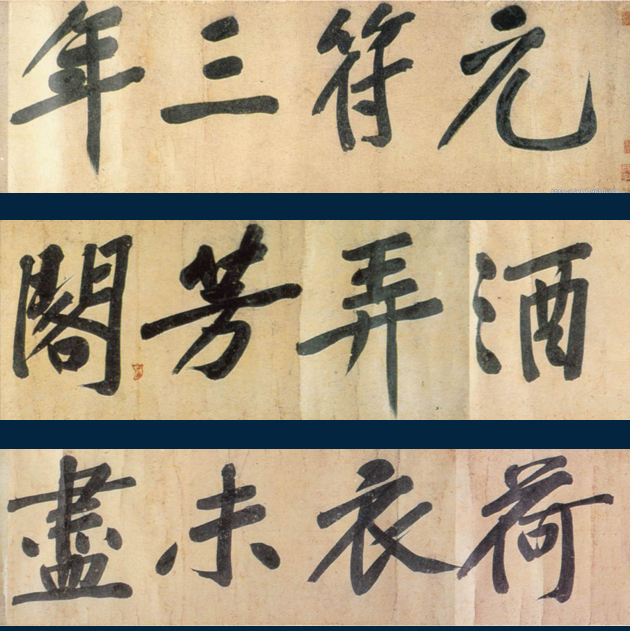 元符三年
酒弄芳閣
荷衣未盡